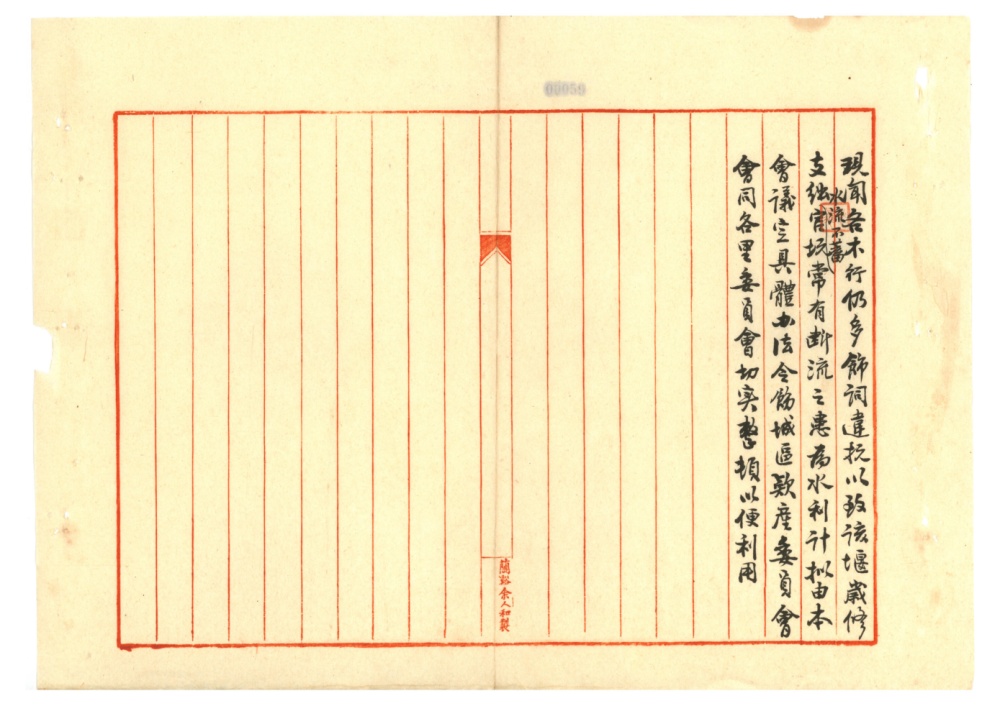 00059
現聞各木行仍多飾詞違抗以致該堰歲修
支絀水流不蓄官坑常有斷流之患為水利計擬由本
會議定具體办法令飭城區款產委員會
會同各里委員會切实整頓以便利用
蘭谿余人和製